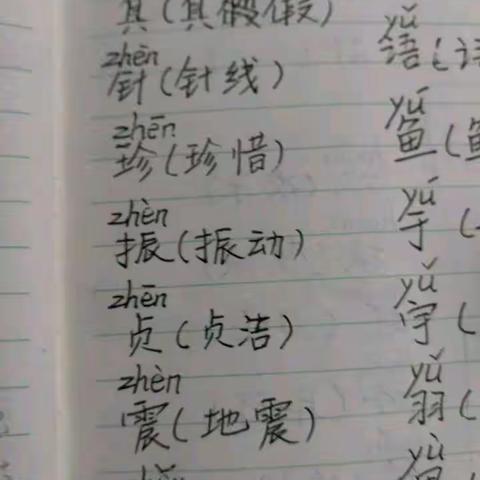 zhēn
针(针线)
zhēn
珍(珍惜)
zhèn
振(振动)
zhēn
贞(贞洁)
zhèn
震(地震)
yǔ
语(
yú
鱼(
yú
于(
yǔ
宇(
yǔ
羽(
yù